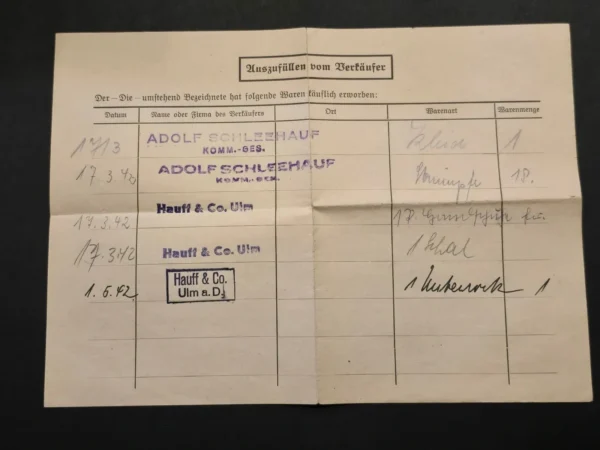 Auszufüllen vom Verkäufer
Der – Die – umstehend Bezeichnete hat folgende Waren käuflich erworben:
Datum Name oder Firma des Verkäufers Ort Warenart Warenmenge
17/3 ADOLF SCHLEEHAUF 1
KOMM.-GES.
17.3.42 ADOLF SCHLEEHAUF Strümpfe 1P.
KOMM.-GES.
17.3.42 Hauff & Co. Ulm 1 P. Handschuhe
17.3.42 Hauff & Co. Ulm 1 Schal
1.6.42. Hauff & Co. 1 Unterrock 1
Ulm a.D.